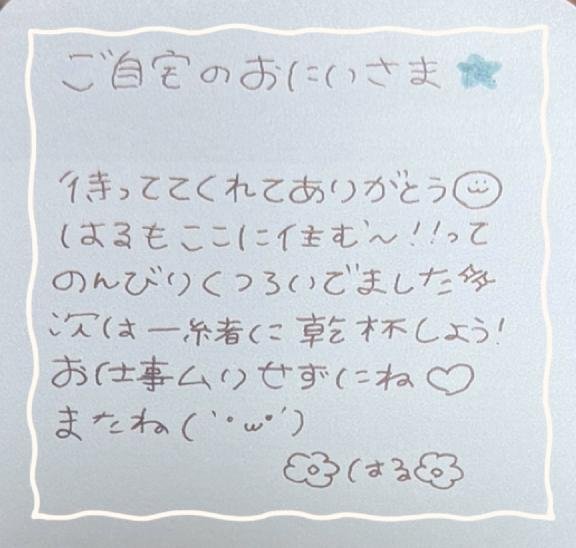 ご自宅のおにいさま
待っててくれてありがとう
はるもここに住む〜!!って
のんびりくつろいでました
次は一緒に乾杯しよう!
お仕事ムリせずにね♡
またね(`・ω・´)
はる